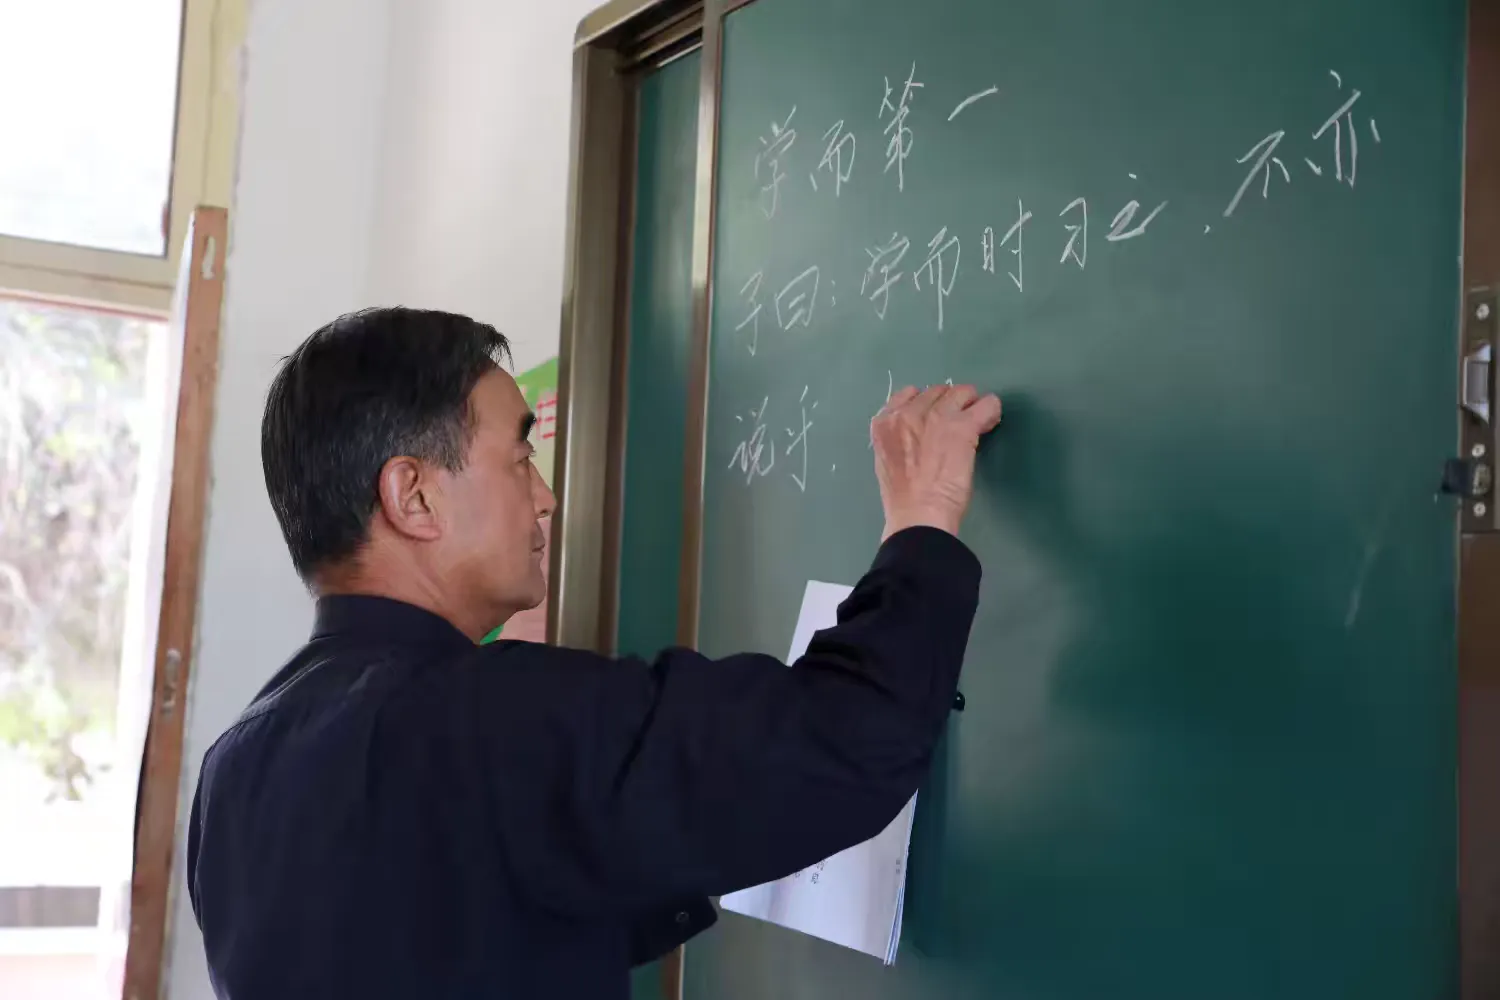 学而第一
子曰:学而时习之,不亦
说乎,